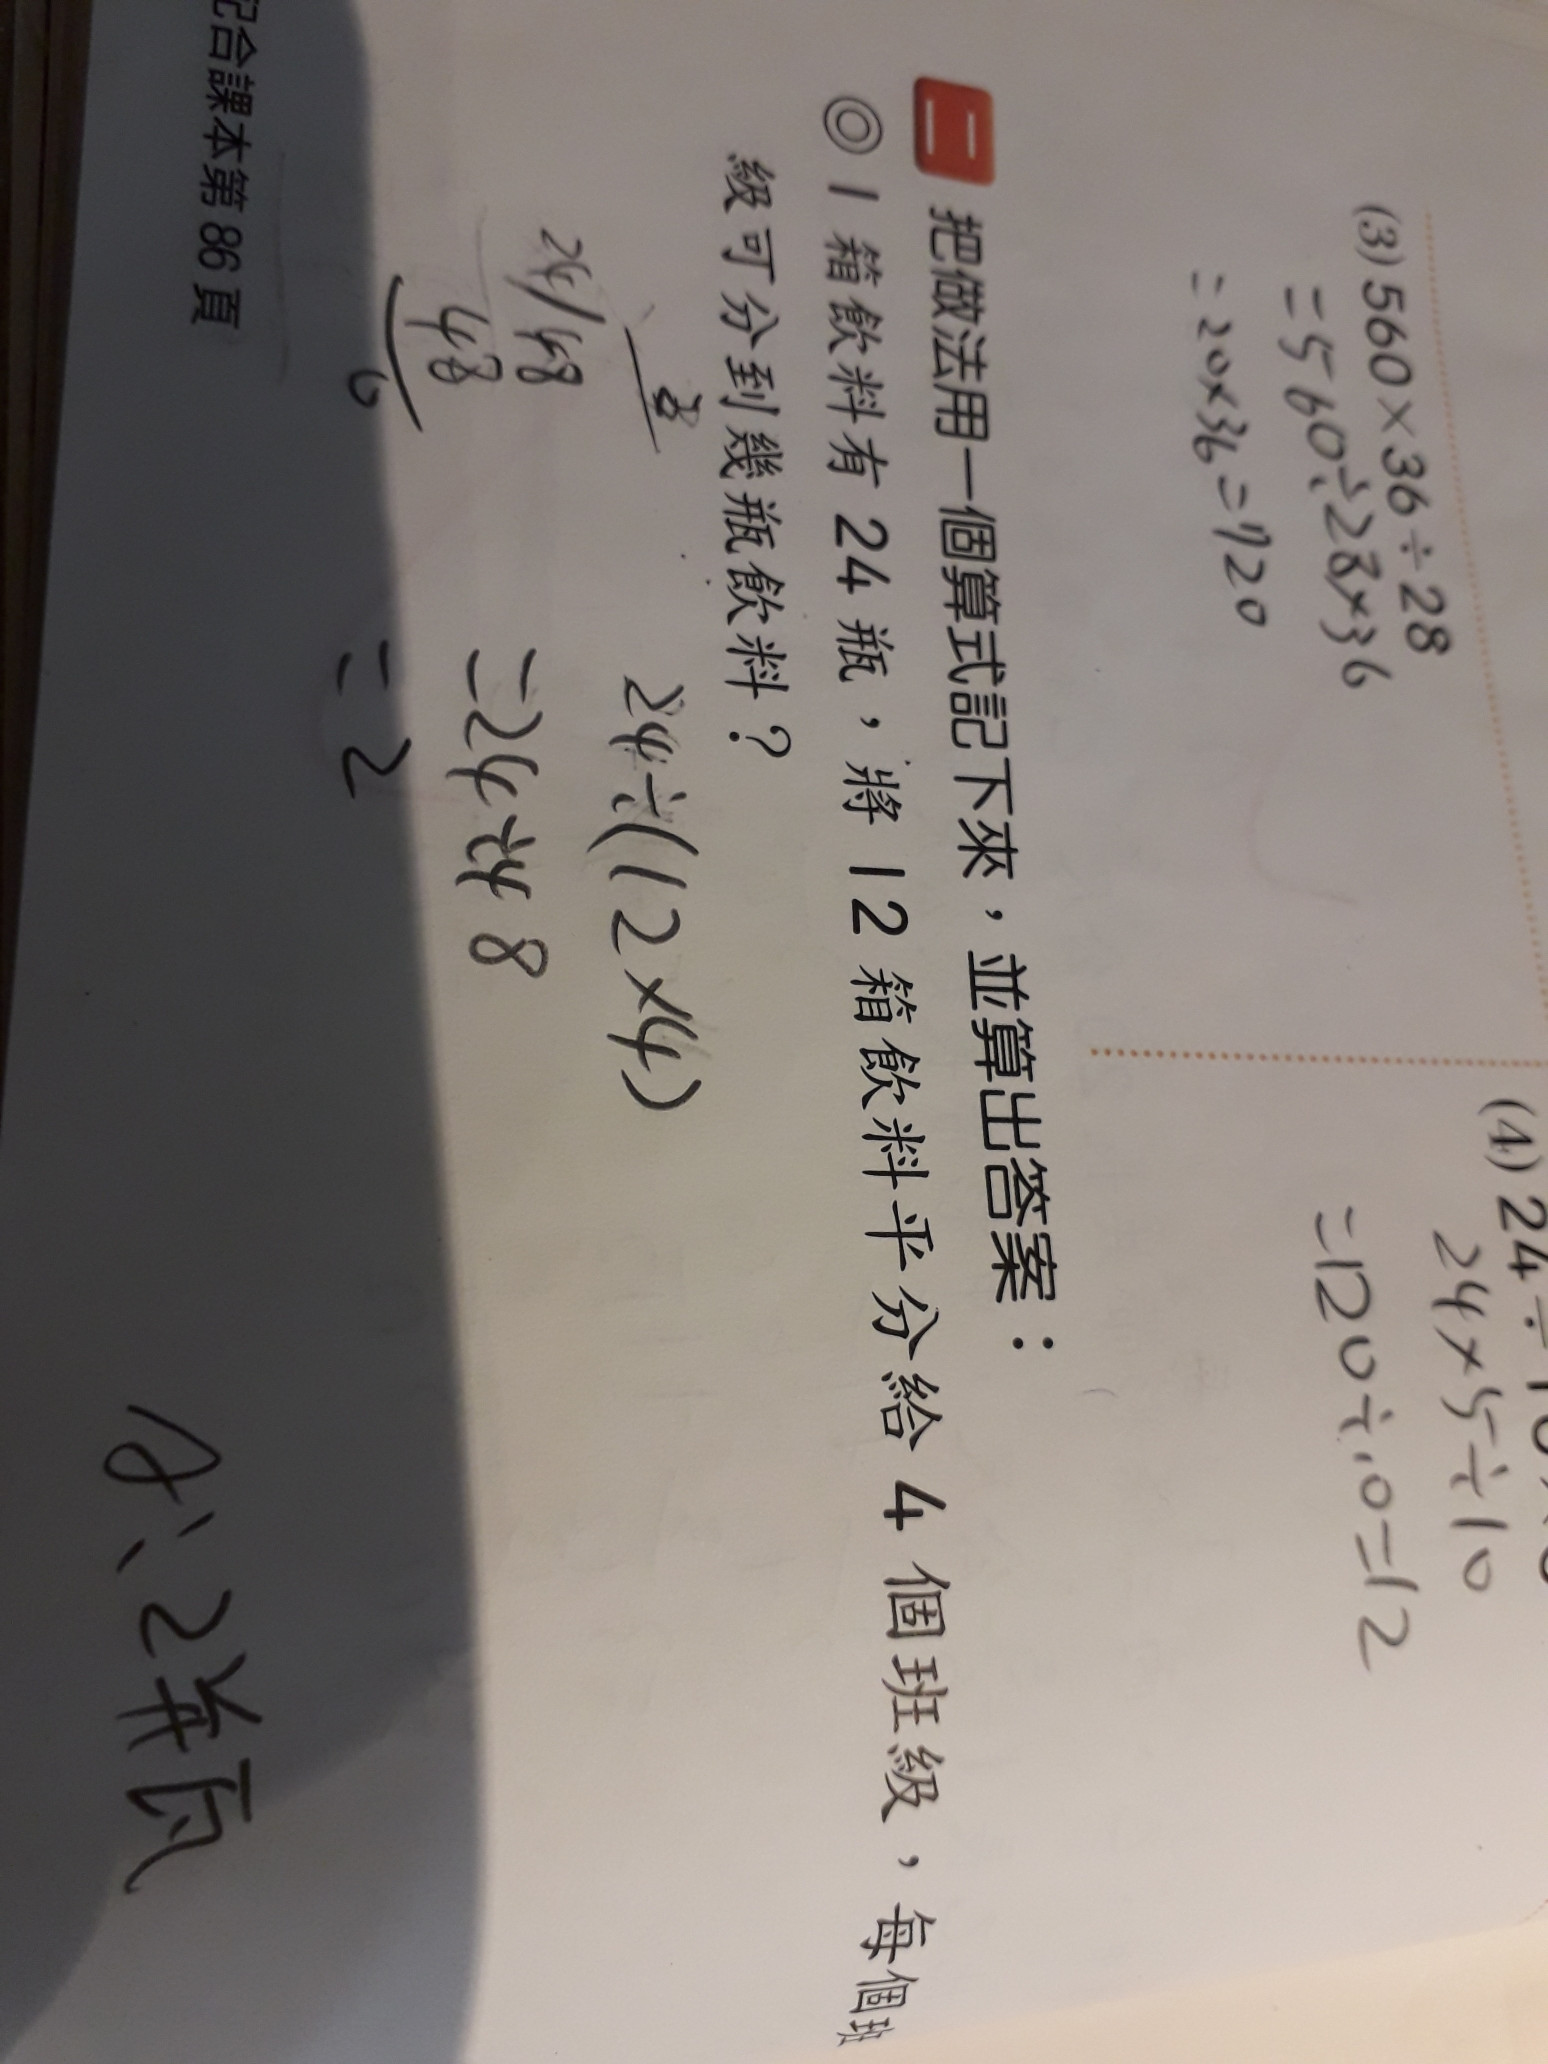 (3) 560×36÷28
=560÷28×36
=20×36=720
(4) 24÷10×
24×5÷10
=120÷10=12
二 把做法用一個算式記下來,並算出答案:
◎1 箱飲料有 24 瓶,將 12 箱飲料平分給 4 個班級,每個班
級可分到幾瓶飲料?
24÷(12×4)
=24÷48
=2
24/48
48
0
A、2瓶
配合課本第 86 頁